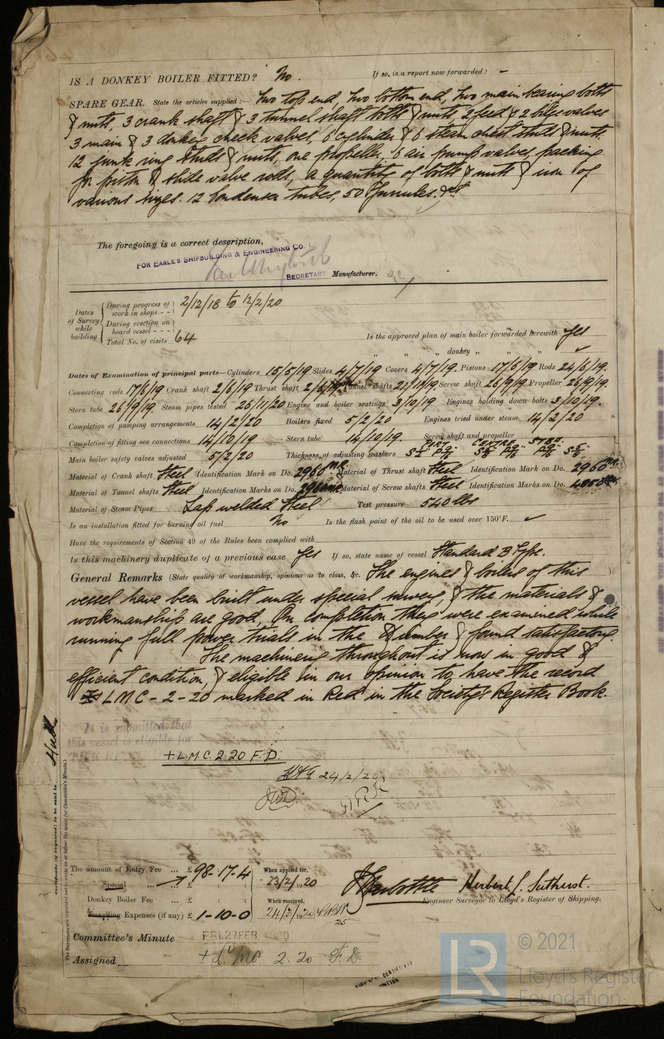 IS A DONKEY BOILER FITTED? No. If so, is a report now forwarded? –
SPARE GEAR. State the articles supplied:— Two top end, two bottom end, two main bearing bolts
& nuts, 3 crank shaft & 3 tunnel shaft bolts & nuts, 2 feed & 2 bilge valves
3 main & 3 donkey check valves, 6 cylinder & 6 steam chest studs & nuts,
12 junk ring studs & nuts, one propeller, 6 air pump valves, packing
for piston & slide valve rods, a quantity of bolts & nuts & iron of
various sizes. 12 Condenser tubes, 50 ferrules. &c.
The foregoing is a correct description,
FOR EARLE'S SHIPBUILDING & ENGINEERING CO.
SECRETARY Manufacturer.
Dates of Survey while building
During progress of work in shops - - 2/12/18 to 12/2/20
During erection on board vessel - - -
Total No. of visits 64
Is the approved plan of main boiler forwarded herewith Yes
" " donkey " " " ✓
Dates of Examination of principal parts—Cylinders 15/5/19 Slides 4/7/19 Covers 4/7/19 Pistons 17/6/19 Rods 24/6/19.
Connecting rods 17/6/19 Crank shaft 2/6/19 Thrust shaft Tunnel shafts 21/8/19 Screw shaft 26/9/19 Propeller 26/9/19.
Stern tube 26/9/19 Steam pipes tested 25/11/20 Engine and boiler seatings 3/10/19 Engines holding down bolts 3/10/19.
Completion of pumping arrangements 14/2/20 Boilers fixed 5/2/20 Engines tried under steam 14/2/20
Completion of fitting sea connections 14/10/19 Stern tube 14/10/19. Screw shaft and propeller
Main boiler safety valves adjusted 5/2/20 Thickness of adjusting washers PORT CENTRE STBD.
Material of Crank shaft Steel Identification Mark on Do. 2960 Material of Thrust shaft Steel Identification Mark on Do. 2960
Material of Tunnel shafts Steel Identification Marks on Do. Material of Screw shafts Steel Identification Marks on Do.
Material of Steam Pipes Lap welded Steel Test pressure 540 lbs
Is an installation fitted for burning oil fuel No Is the flash point of the oil to be used over 150°F. ✓
Have the requirements of Section 49 of the Rules been complied with
Is this machinery duplicate of a previous case Yes If so, state name of vessel Standard B Type.
General Remarks (State quality of workmanship, opinions as to class, &c. The engines & boilers of this
vessel have been built under special survey, & the materials &
workmanship are good. On completion they were examined while
running full power trials in the Humber & found satisfactory.
The machinery throughout is now in good &
efficient condition, & eligible in our opinion to have the record
LMC - 2 - 20 marked in Red in the Society's Register Book.
It is submitted that
this vessel is eligible for
+ L.M.C. 2.20 F.D.
24/2/20
The amount of Entry Fee ... £
Special ... £ 98-17-4 When applied for, 23/2/1920
Donkey Boiler Fee ... £
Travelling Expenses (if any) £ 1-10-0 When received, 24/2/1920
Herbert J. Suthurst.
Engineer Surveyor to Lloyd's Register of Shipping.
Committee's Minute FRI. 27 FEB. 1920
Assigned + LMC 2.20 F.D.
Hull
LR © 2021
Lloyd's Register
Foundation